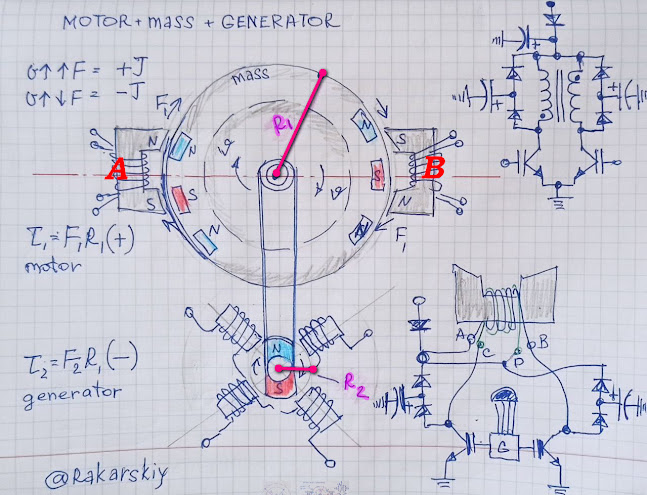 MOTOR + mass + GENERATOR
σ↑↑F = +J
σ↑↓F = -J
mass
F₁
R1
N
N
S
N
S
N
S
N
S
N
A
B
ϑ
ϑ
F₁
τ₁ = F₁R₁(+)
motor
τ₂ = F₂R₁(-)
generator
N
S
R2
A
C
D
B
G
+
+
+
+
+
@Rakarskiy